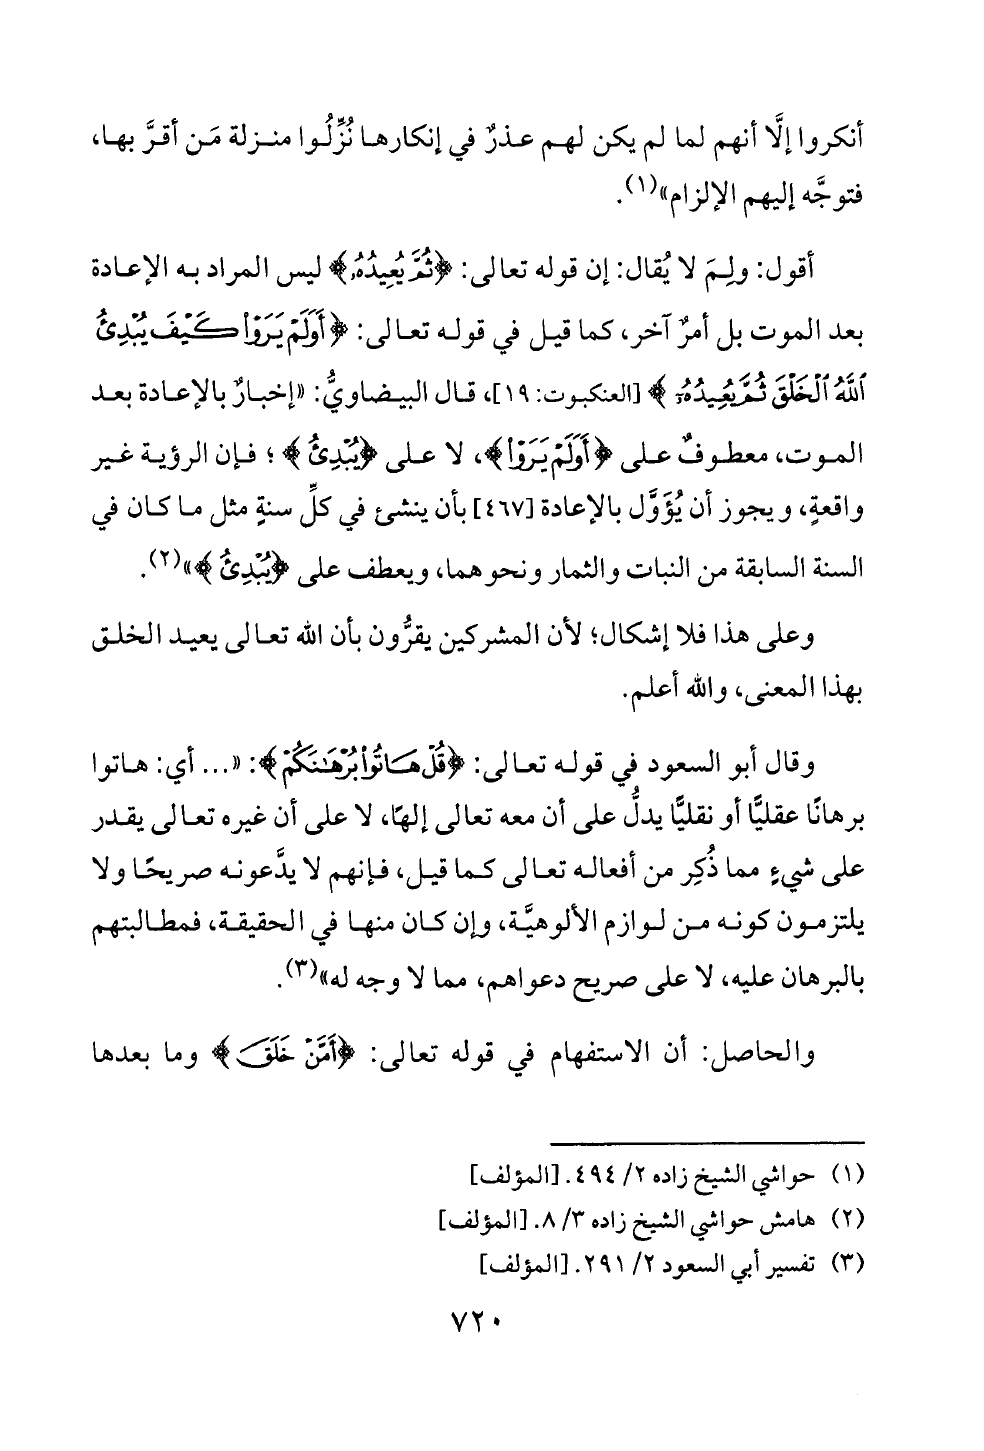 أنكروا إلَّا أنهم لما لم يكن لهم عذرٌ في إنكارها نُزِّلُوا منزلة مَن أقرَّ بها،
فتوجَّه إليهم الإلزام»(١).
أقول: ولِمَ لا يُقال: إن قوله تعالى: ﴿ثُمَّ يُعِيدُهُۥ﴾ ليس المراد به الإعادة
بعد الموت بل أمرٌ آخر، كما قيل في قوله تعالى: ﴿أَوَلَمْ يَرَوْا۟ كَيْفَ يُبْدِئُ
ٱللَّهُ ٱلْخَلْقَ ثُمَّ يُعِيدُهُۥٓ﴾ [العنكبوت: ١٩]، قال البيضاويُّ: «إخبارٌ بالإعادة بعد
الموت، معطوفٌ على ﴿أَوَلَمْ يَرَوْا۟﴾، لا على ﴿يُبْدِئُ﴾؛ فإن الرؤية غير
واقعةٍ، ويجوز أن يُؤَوَّل بالإعادة [٤٦٧] بأن ينشئ في كلِّ سنةٍ مثل ما كان في
السنة السابقة من النبات والثمار ونحوهما، ويعطف على ﴿يُبْدِئُ﴾»(٢).
وعلى هذا فلا إشكال؛ لأن المشركين يقرُّون بأن الله تعالى يعيد الخلق
بهذا المعنى، والله أعلم.
وقال أبو السعود في قوله تعالى: ﴿قُلْ هَاتُوا۟ بُرْهَٰنَكُمْ﴾: «... أي: هاتوا
برهانًا عقليًّا أو نقليًّا يدلُّ على أن معه تعالى إلهًا، لا على أن غيره تعالى يقدر
على شيءٍ مما ذُكِر من أفعاله تعالى كما قيل، فإنهم لا يدَّعونه صريحًا ولا
يلتزمون كونه من لوازم الألوهيَّة، وإن كان منها في الحقيقة، فمطالبتهم
بالبرهان عليه، لا على صريح دعواهم، مما لا وجه له»(٣).
والحاصل: أن الاستفهام في قوله تعالى: ﴿أَمَّنْ خَلَقَ﴾ وما بعدها
(١) حواشي الشيخ زاده ٢/ ٤٩٤. [المؤلف]
(٢) هامش حواشي الشيخ زاده ٣/ ٨. [المؤلف]
(٣) تفسير أبي السعود ٢/ ٢٩١. [المؤلف]
٧٢٠